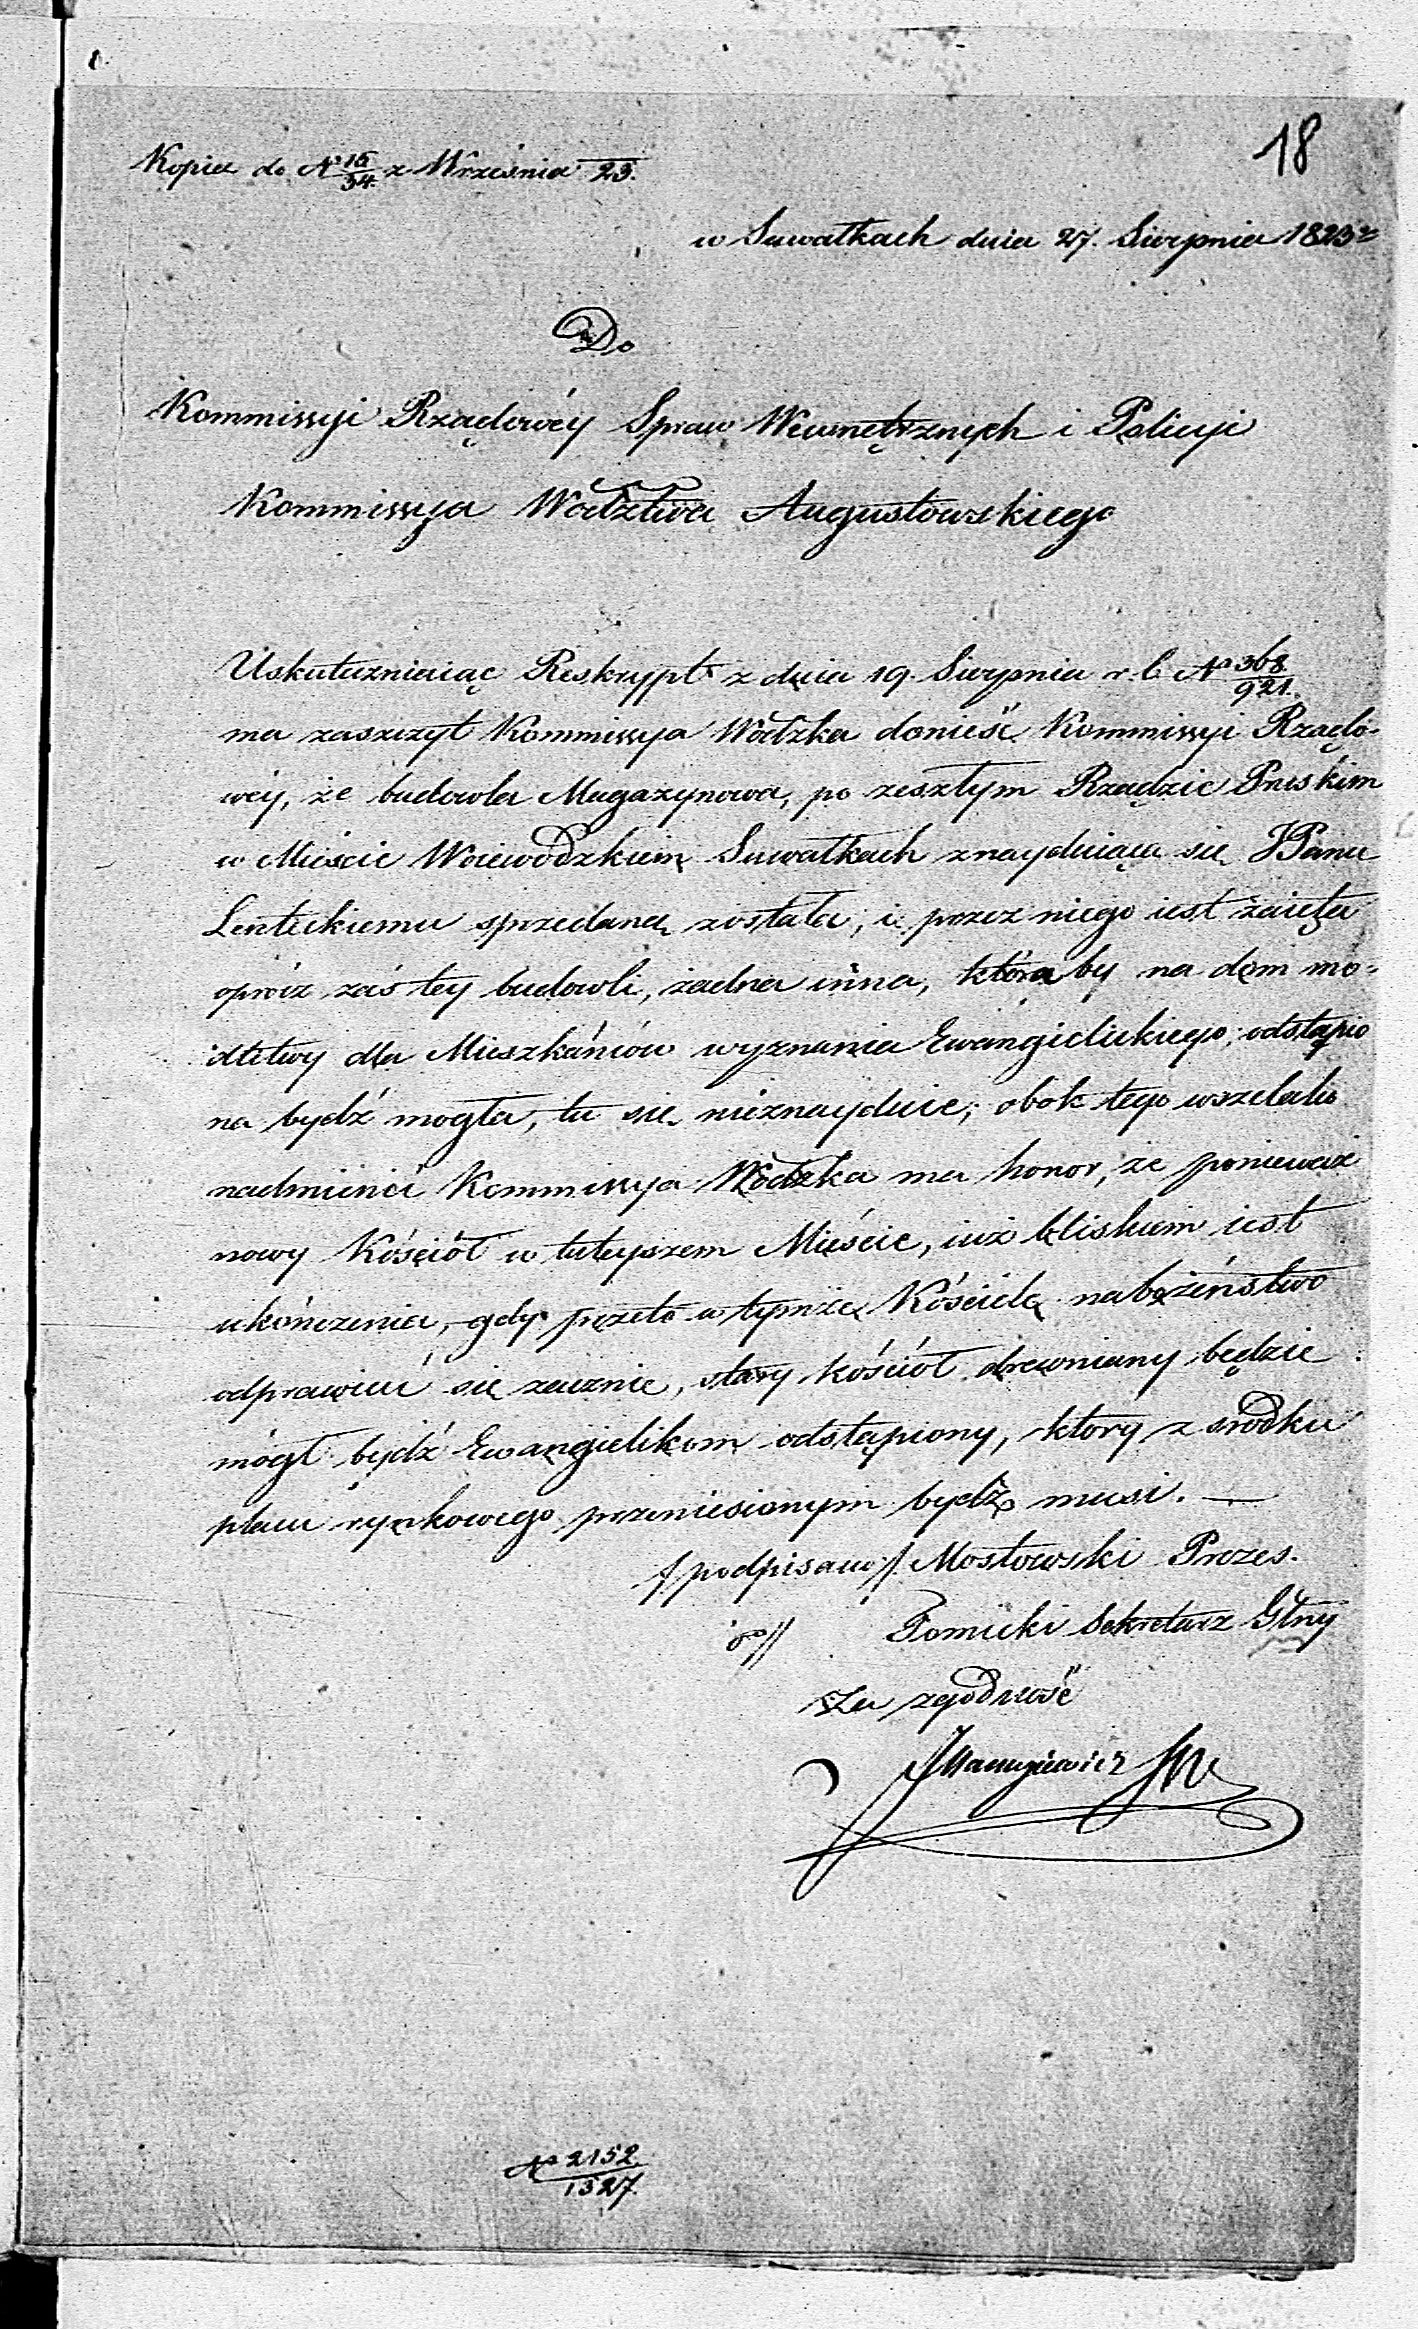 18
Kopia do № 15/34 z Września 23.
w Suwałkach dnia 27. Sierpnia 1823 r
Do
Kommissyi Rządowéy Spraw Wewnętrznych i Policyi
Kommissya Wodztwa Augustowskiego
Uskuteczniaiąc Reskrypt z dnia 19. Sierpnia r. b. № 368/921.
ma zaszczyt Kommissya Wódzka donieść Kommissyi Rządo-
wéy, że budowla Magazynowa, po zeszłym Rządzie Pruskim
w Mieście Woiewódzkiem Suwałkach znayduiąca się JPanu
Lenteckiemu sprzedaną została, i przez niego iest zaięta
oprócz zaś tey budowli, żadna inna, któraby na dom mo-
dlitwy dla Mieszkańców wyznania Ewangielickiego, odstąpio
na bydź mogła, tu się nieznayduie; obok tego wszelako
nadmienić Kommissya Wódzka ma honor, że ponieważ
nowy Kościół w tuteyszem Mieście, iuż bliskiem iest
ukończenia, gdy przeto w tymże Kościele nabożeństwo
odprawiać się zacznie, stary kościół drewniany będzie
mógł bydź Ewangielikom odstąpiony, który z środku
placu rynkowego przeniesionym bydź musi. —
/podpisano/ Mostowski Prezes.
Tomicki Sekretarz Głny
Za zgodność
№ 2152/1327.